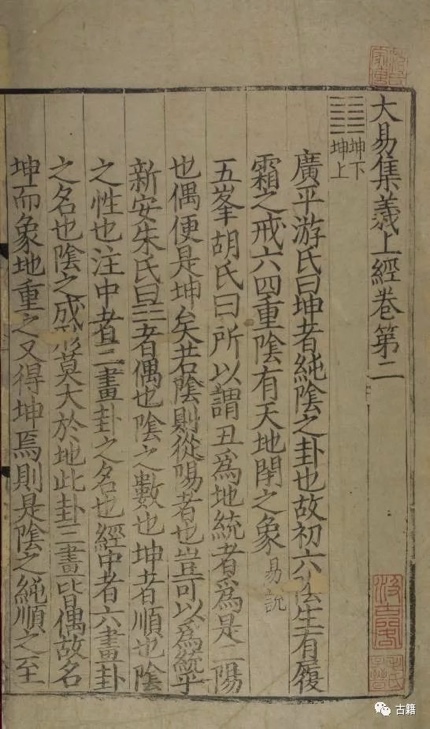 大易集義上經卷第二
䷁坤下坤上
廣平游氏曰坤者純陰之卦也故初六生有履
霜之戒六四重陰有天地閉之象 易說
五峯胡氏曰所以謂丑爲地統者爲是二陽
也偶便是坤矣若陰則從陽者也豈可以爲統乎
新安朱氏曰⚋者偶也陰之數也坤者順也陰
之性也注中者三畫卦之名也經中者六畫卦
之名也陰之成形莫大於地此卦三畫皆偶故名
坤而象地重之又得坤焉則是陰之純順之至
古籍